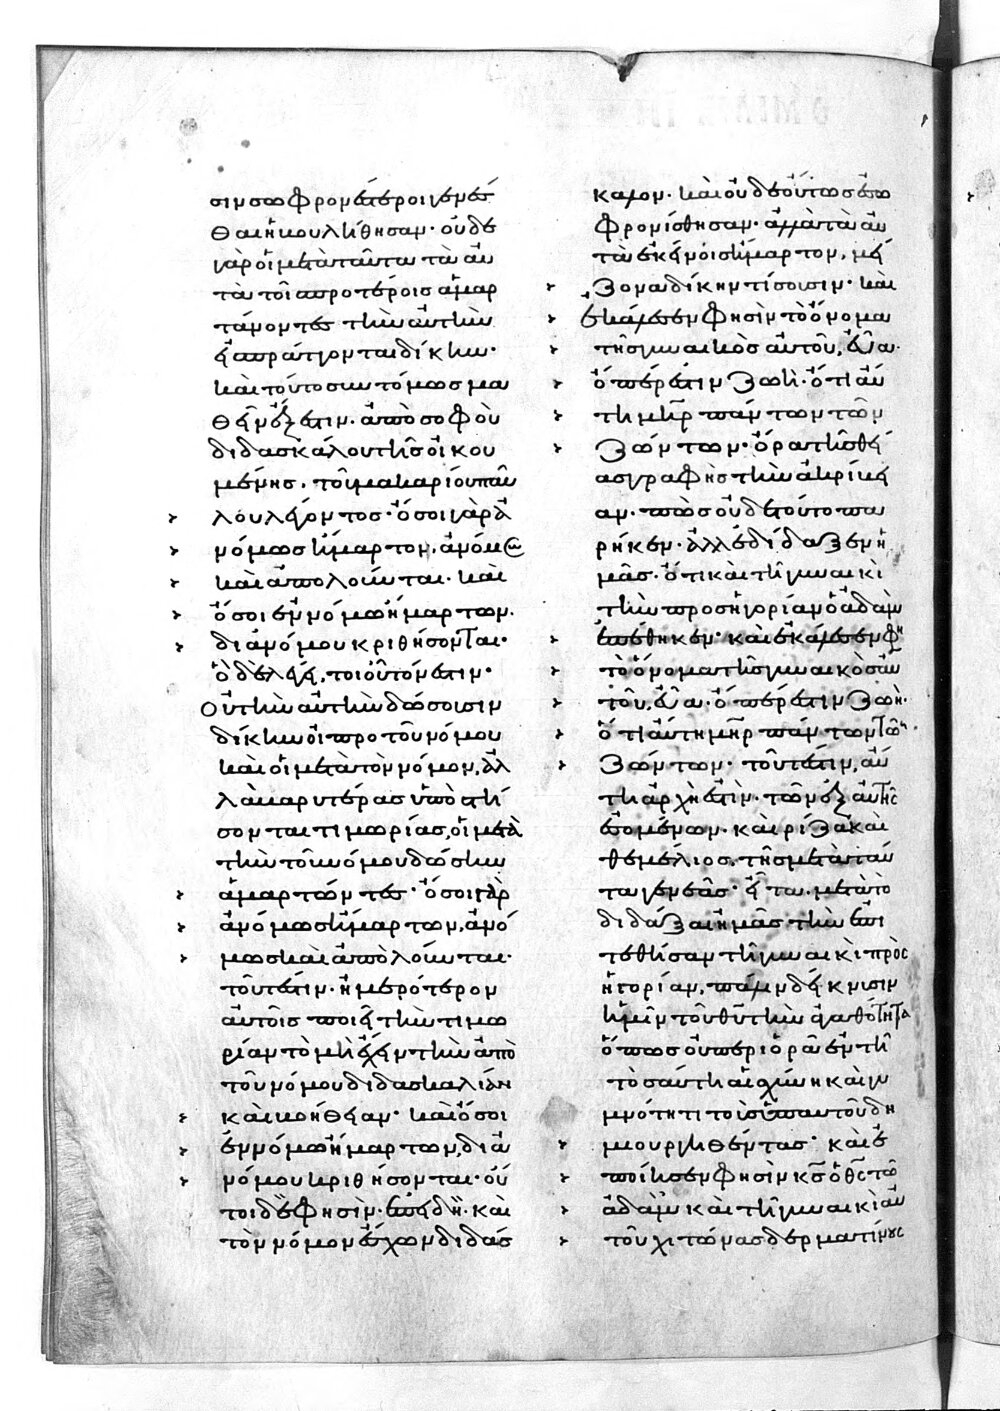 σιν σωφρονέστεροι γενέσ
θαι ἠβουλήθησαν· οὐδὲ
γὰρ οἱ μετὰ ταῦτα τὰ αὐ
τὰ τοῖς προτέροις ἁμαρ
τάνοντες τὴν αὐτὴν
εἰσπράττονται δίκην·
καὶ τοῦτο συντόμως μα
θεῖν ἔξεστιν· ἀπὸ σοφοῦ
διδασκάλου τῆς οἰκου
μένης· τοῦ μακαρίου παύ
λου λέγοντος· ὅσοι γὰρ ἀ
νόμως ἥμαρτον, ἀνόμως
καὶ ἀπολοῦνται· καὶ
ὅσοι ἐν νόμω ἥμαρτον·
διὰ νόμου κριθήσονται·
ὃ δὲ λέγει, τοιοῦτόν ἐστιν·
Οὐ τὴν αὐτὴν δώσουσιν
δίκην οἱ πρὸ τοῦ νόμου
καὶ οἱ μετὰ τὸν νόμον, ἀλ
λὰ βαρυτέρας ὑποστή
σονται τιμωρίας, οἱ μετὰ
τὴν τοῦ νόμου δόσιν
ἁμαρτόντες· ὅσοι γὰρ
ἀνόμως ἥμαρτον, ἀνό
μως καὶ ἀπολοῦνται·
τουτέστιν· ἡμερότερον
αὐτοῖς ποιεῖ τὴν τιμω
ρίαν τὸ μὴ ἔχειν τὴν ἀπὸ
τοῦ νόμου διδασκαλίαν
καὶ βοήθειαν· καὶ ὅσοι
ἐν νόμω ἥμαρτον, διὰ
νόμου κριθήσονται· οὗ
τοι δέ φησιν· ἐπειδὴ· καὶ
τὸν νόμον ἔχων διδάσ
καλον· καὶ οὐδὲ οὕτως ἐσω
φρονίσθησαν· ἀλλὰ τὰ αὐ
τὰ ἐκείνοις ἥμαρτον, μεί
ζονα δίκην τίσουσιν· καὶ
ἐκάλεσεν φησὶν τὸ ὄνομα
τῆς γυναικὸς αὐτοῦ, εὖα·
ὅπερ ἐστιν ζωὴ· ὅτι αὕ
τη μηρ πάντων τῶν
ζώντων· ὅρα τῆς θεί
ας γραφῆς τὴν ἀκρίβει
αν· πῶς οὐδὲ τοῦτο πα
ρῆκεν· ἀλλ' ἐδίδαξεν ἡ
μᾶς· ὅτι καὶ τῆ γυναικὶ
τὴν προσηγορίαν ὁ ἀδὰμ
ἐπέθηκεν· καὶ ἐκάλεσεν φη
τὸ ὄνομα τῆς γυναικὸς αὐ
τοῦ, εὖα· ὅπερ ἐστιν ζωὴ·
ὅτι αὕτη μηρ πάντων τῶν
ζώντων· τουτέστιν, αὕ
τη ἀρχή ἐστιν· τῶν ἐξ αὐτῆς
ἐσομένων· καὶ ρίζα καὶ
θεμέλιος· τῆς μετὰ ταῦ
τα γενεᾶς· εἶτα· μετὰ τὸ
διδάξαι ἡμᾶς τὴν ἐπι
τεθεῖσαν τῆ γυναικὶ προσ
ηγορίαν, πάλιν δείκνυσιν
ἡμῖν τοῦ θυ τὴν ἀγαθότητα
ὅπως οὐ περιορᾶ ἐν τῆ
τοσαύτη αἰσχύνη καὶ γυ
μνότητι τοὺς ὑπ' αὐτοῦ δη
μιουργηθέντας· καὶ ἐ
ποίησεν φησὶν κς ὁ θς τῶ
ἀδὰμ καὶ τῆ γυναικὶ αὐ
τοῦ χιτῶνας δερματίνους